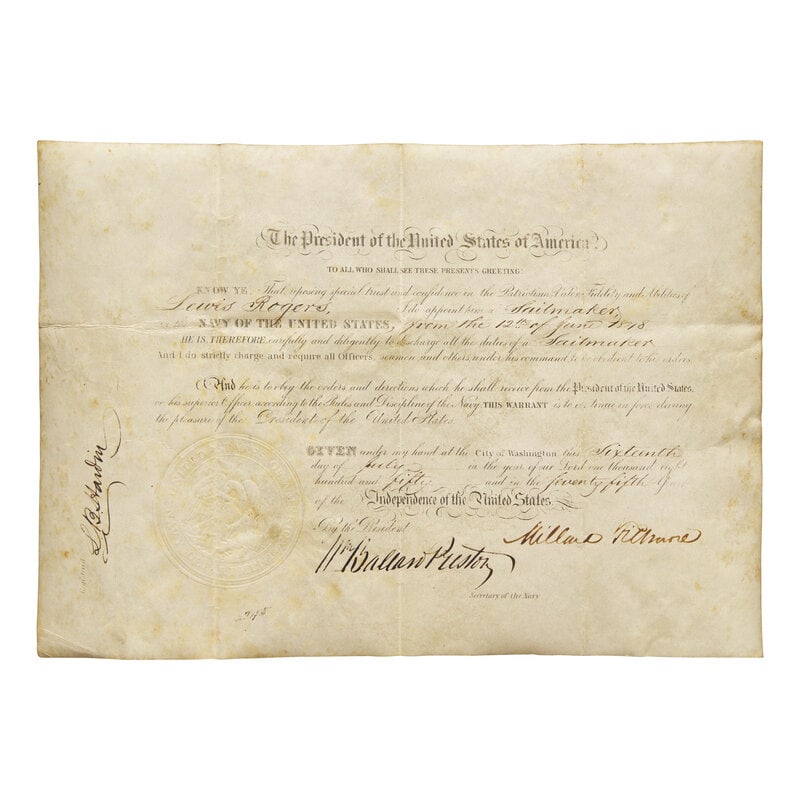 The President of the United States of America.
TO ALL WHO SHALL SEE THESE PRESENTS GREETING:
KNOW YE, That reposing special trust and confidence in the Patriotism, Valor, Fidelity and Abilities of
Lewis Rogers, I do appoint him a Sailmaker,
in the NAVY OF THE UNITED STATES, from the 12th of June 1848
HE IS, THEREFORE, carefully and diligently to discharge all the duties of a Sailmaker
And I do strictly charge and require all Officers, seamen and others, under his command to be obedient to his orders
And he is to obey the orders and directions which he shall receive from the President of the United States,
or his superior Officer, according to the Rules and Discipline of the Navy. THIS WARRANT is to continue in force during
the pleasure of the President of the United States.
GIVEN under my hand at the City of Washington this Sixteenth
day of July in the year of our Lord one thousand eight
hundred and fifty and in the seventy fifth Year
of the Independence of the United States.
By the President
Millard Fillmore
Wm Ballard Preston
Secretary of the Navy
Registered L. B. Hardin